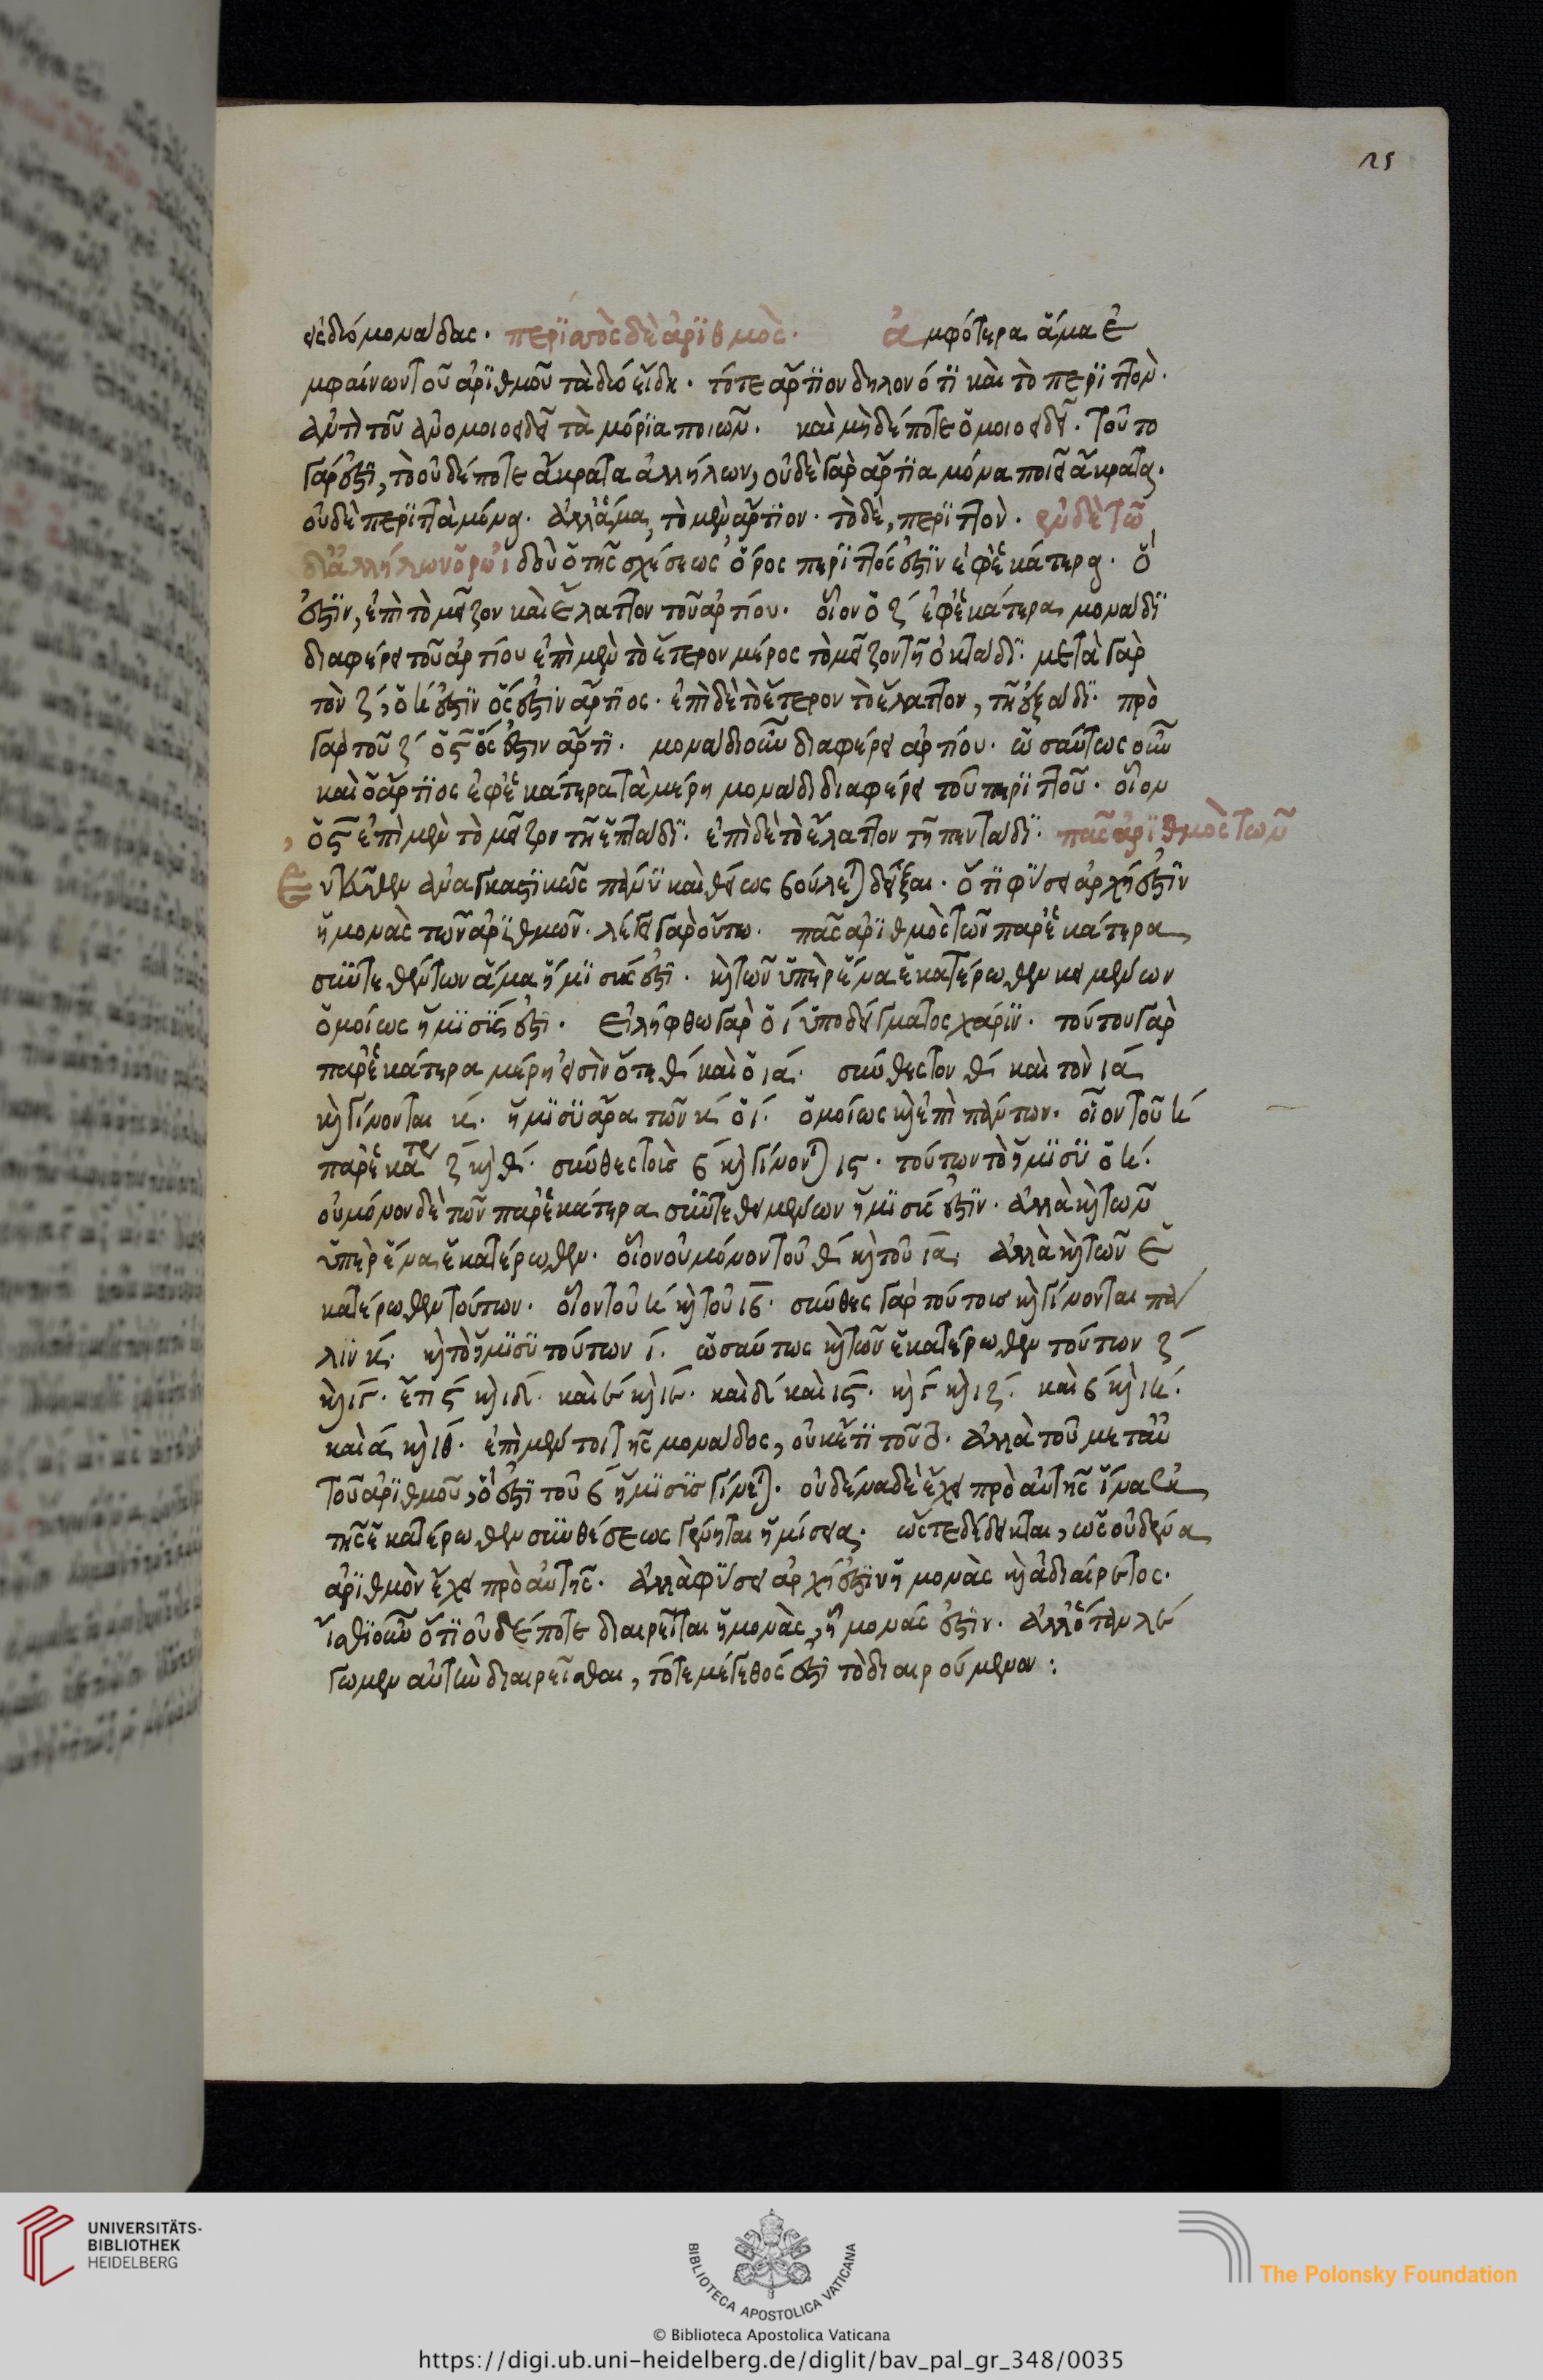 25
εἰς δύο μονάδας. περιττὸς δὲ ἀριθμὸς. ἀμφότερα ἅμα ἐ
μφαίνων τοῦ ἀριθμοῦ τὰ δύο εἴδη. τότε ἄρτιον δηλονότι καὶ τὸ περιττόν.
ἀντὶ τοῦ ἀνομοιοειδῆ τὰ μόρια ποιῶν. καὶ μηδέποτε ὁμοιοειδῆ. τοῦτο
γάρ ἐστι, τὸ οὐδέποτε ἄκρατα ἀλλήλων, οὐδὲ γὰρ ἄρτια μόνα ποιεῖ ἄκρατα.
οὐδὲ περιττὰ μόνα. ἀλλ' ἅμα, τὸ μὲν ἄρτιον. τὸ δὲ, περιττὸν. ἐν δὲ τῷ
δι' ἀλλήλων ὅρῳ ὁ τῆς σχέσεως ὅρος περιττός ἐστιν ἐφ' ἑκάτερα. ὅ
ἐστιν, ἐπὶ τὸ μεῖζον καὶ ἔλαττον τοῦ ἀρτίου. οἷον ὁ ζ ἐφ' ἑκάτερα μονάδι
διαφέρει τοῦ ἀρτίου ἐπὶ μὲν τὸ ἕτερον μέρος τὸ μεῖζον τῇ ὀκτάδι. μετὰ γὰρ
τὸν ζ, ὁ η ἐστὶν ὅς ἐστιν ἄρτιος. ἐπὶ δὲ τὸ ἕτερον τὸ ἔλαττον, τῇ ἑξάδι. πρὸ
γὰρ τοῦ ζ ὁ ϛ ὅς ἐστιν ἄρτι. μονάδι οὖν διαφέρει ἀρτίου. ὡσαύτως οὖν
καὶ ὁ ἄρτιος ἐφ' ἑκάτερα τὰ μέρη μονάδι διαφέρει τοῦ περιττοῦ. οἷον
ὁ ϛ ἐπὶ μὲν τὸ μεῖζον τῇ ἑπτάδι. ἐπὶ δὲ τὸ ἔλαττον τῇ πεντάδι. πᾶς ἀριθμὸς τῶν
ἐντεῦθεν ἀναγκαστικῶς πάνυ καὶ θείως βούλεται δεῖξαι. ὅτι φύσει ἀρχή ἐστιν
ἡ μονὰς τῶν ἀριθμῶν. λέγει γὰρ οὕτω. πᾶς ἀριθμὸς τῶν παρ' ἑκάτερα
συντεθέντων ἅμα ἥμισύς ἐστι. καὶ τῶν ὑπὲρ ἕνα ἑκατέρωθεν κειμένων
ὁμοίως ἥμισύς ἐστι. εἰλήφθω γὰρ ὁ ι ὑποδείγματος χάριν. τούτου γὰρ
παρ' ἑκάτερα μέρη εἰσὶν ὅ τε θ καὶ ὁ ια. σύνθες τὸν θ καὶ τὸν ια
καὶ γίνονται κ. ἥμισυ ἄρα τῶν κ ὁ ι. ὁμοίως καὶ ἐπὶ πάντων. οἷον τοῦ η
παρ' ἑκάτερα ζ καὶ θ. σύνθες τοὺς β καὶ γίνονται ιϛ. τούτων τὸ ἥμισυ ὁ η.
οὐ μόνον δὲ τῶν παρ' ἑκάτερα συντεθειμένων ἥμισύ ἐστιν. ἀλλὰ καὶ τῶν
ὑπὲρ ἕνα ἑκατέρωθεν. οἷον οὐ μόνον τοῦ θ καὶ τοῦ ια. ἀλλὰ καὶ τῶν ἑ
κατέρωθεν τούτων. οἷον τοῦ η καὶ τοῦ ιβ. σύνθες γὰρ τούτοις καὶ γίνονται πά
λιν κ. καὶ τὸ ἥμισυ τούτων ι. ὡσαύτως καὶ τῶν ἑκατέρωθεν τούτων ζ
καὶ ιγ. ἔτι ϛ καὶ ιδ. καὶ ε καὶ ιε. καὶ δ καὶ ιϛ. καὶ γ καὶ ιζ. καὶ β καὶ ιη.
καὶ α καὶ ιθ. ἐπὶ μέντοι τῆς μονάδος, οὐκέτι τοῦτο. ἀλλὰ τοῦ μετ' αὐ
τοῦ ἀριθμοῦ, ὅ ἐστι τοῦ β ἥμισυς γίνεται. οὐδένα δὲ ἔχει πρὸ αὐτῆς ἵνα ἐκ
τῆς ἑκατέρωθεν συνθέσεως γένηται ἡμίσεια. ὥστε δέδεικται, ὡς οὐδένα
ἀριθμὸν ἔχει πρὸ αὐτῆς. ἀλλὰ φύσει ἀρχή ἐστιν ἡ μονὰς καὶ ἀδιαίρετος.
ἴσθι οὖν ὅτι οὐδέποτε διαιρεῖται ἡ μονὰς, ᾗ μονάς ἐστιν. ἀλλ' ὅταν λέ
γωμεν αὐτὴν διαιρεῖσθαι, τότε μέγεθός ἐστι τὸ διαιρούμενον:
UNIVERSITÄTS-
BIBLIOTHEK
HEIDELBERG
BIBLIOTECA APOSTOLICA VATICANA
© Biblioteca Apostolica Vaticana
The Polonsky Foundation
https://digi.ub.uni-heidelberg.de/diglit/bav_pal_gr_348/0035